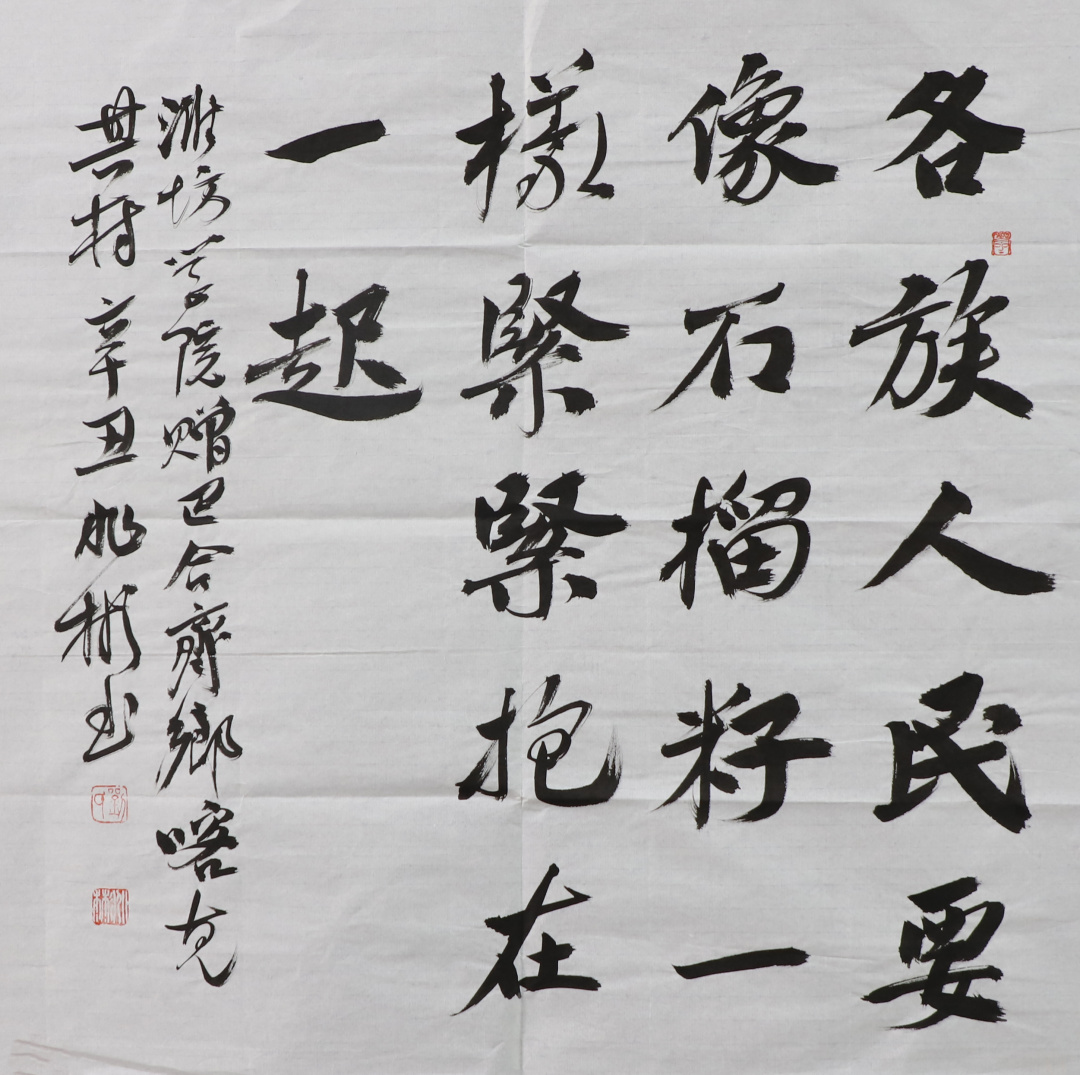 各族人民要
像石榴籽一
樣緊緊抱在
一起
濰坊学院赠巴合齊鄉喀克
其村 辛丑 兆彬书